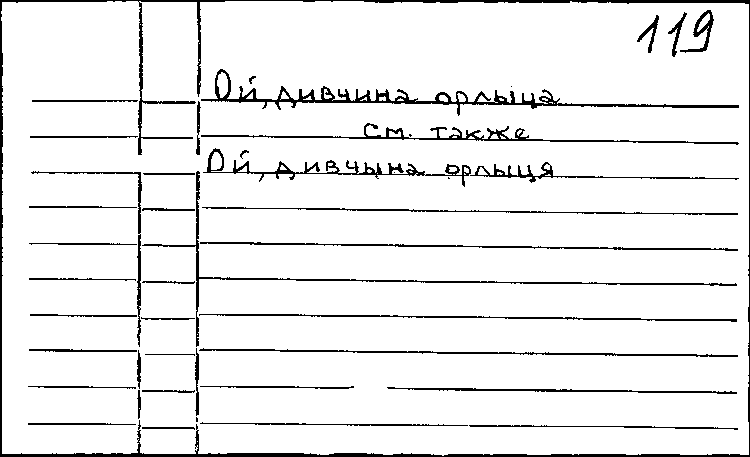 119
Ой, дивчина орлыца
см. также
Ой, дивчына орлыця